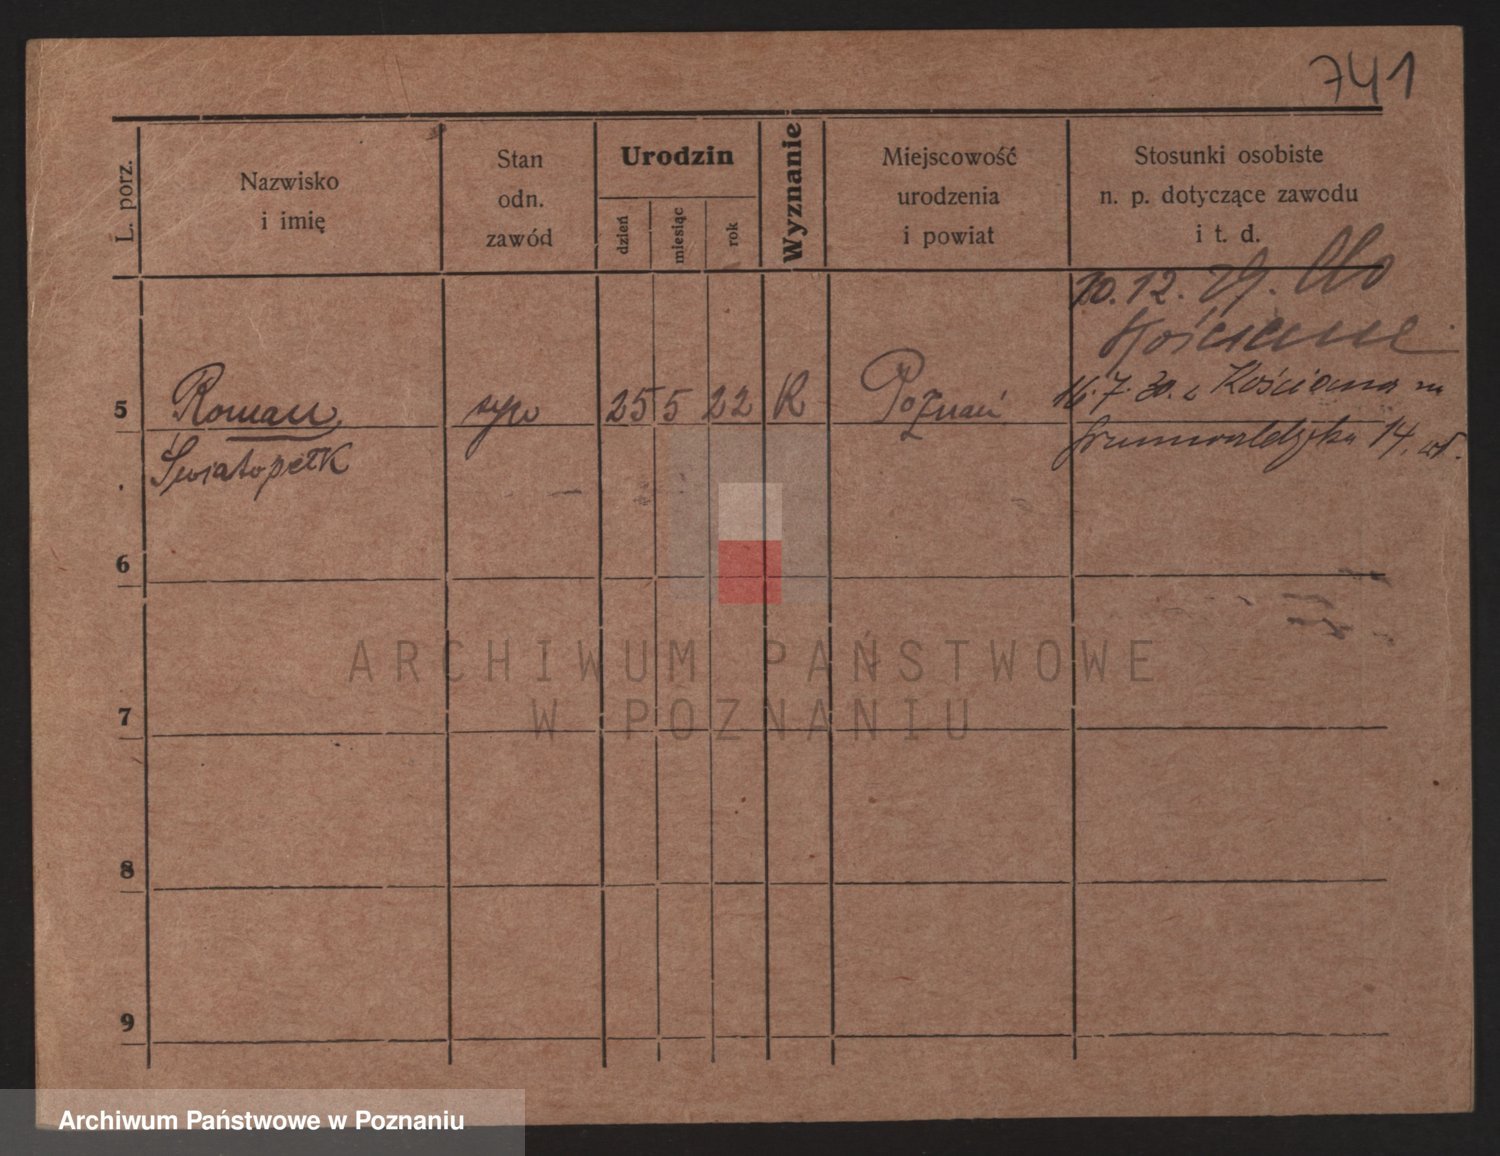 741
L. porz.
Nazwisko
i imię
Stan
odn.
zawód
Urodzin
dzień
miesiąc
rok
Wyznanie
Miejscowość
urodzenia
i powiat
Stosunki osobiste
n. p. dotyczące zawodu
i t. d.
10.12.29. do
Kościana
5 Roman syn 25 5 22 K Poznań 16.7.30. z Kościana na
Światopełk Grunwaldzka 14.
6
ARCHIWUM PAŃSTWOWE
W POZNANIU
7
8
9
Archiwum Państwowe w Poznaniu